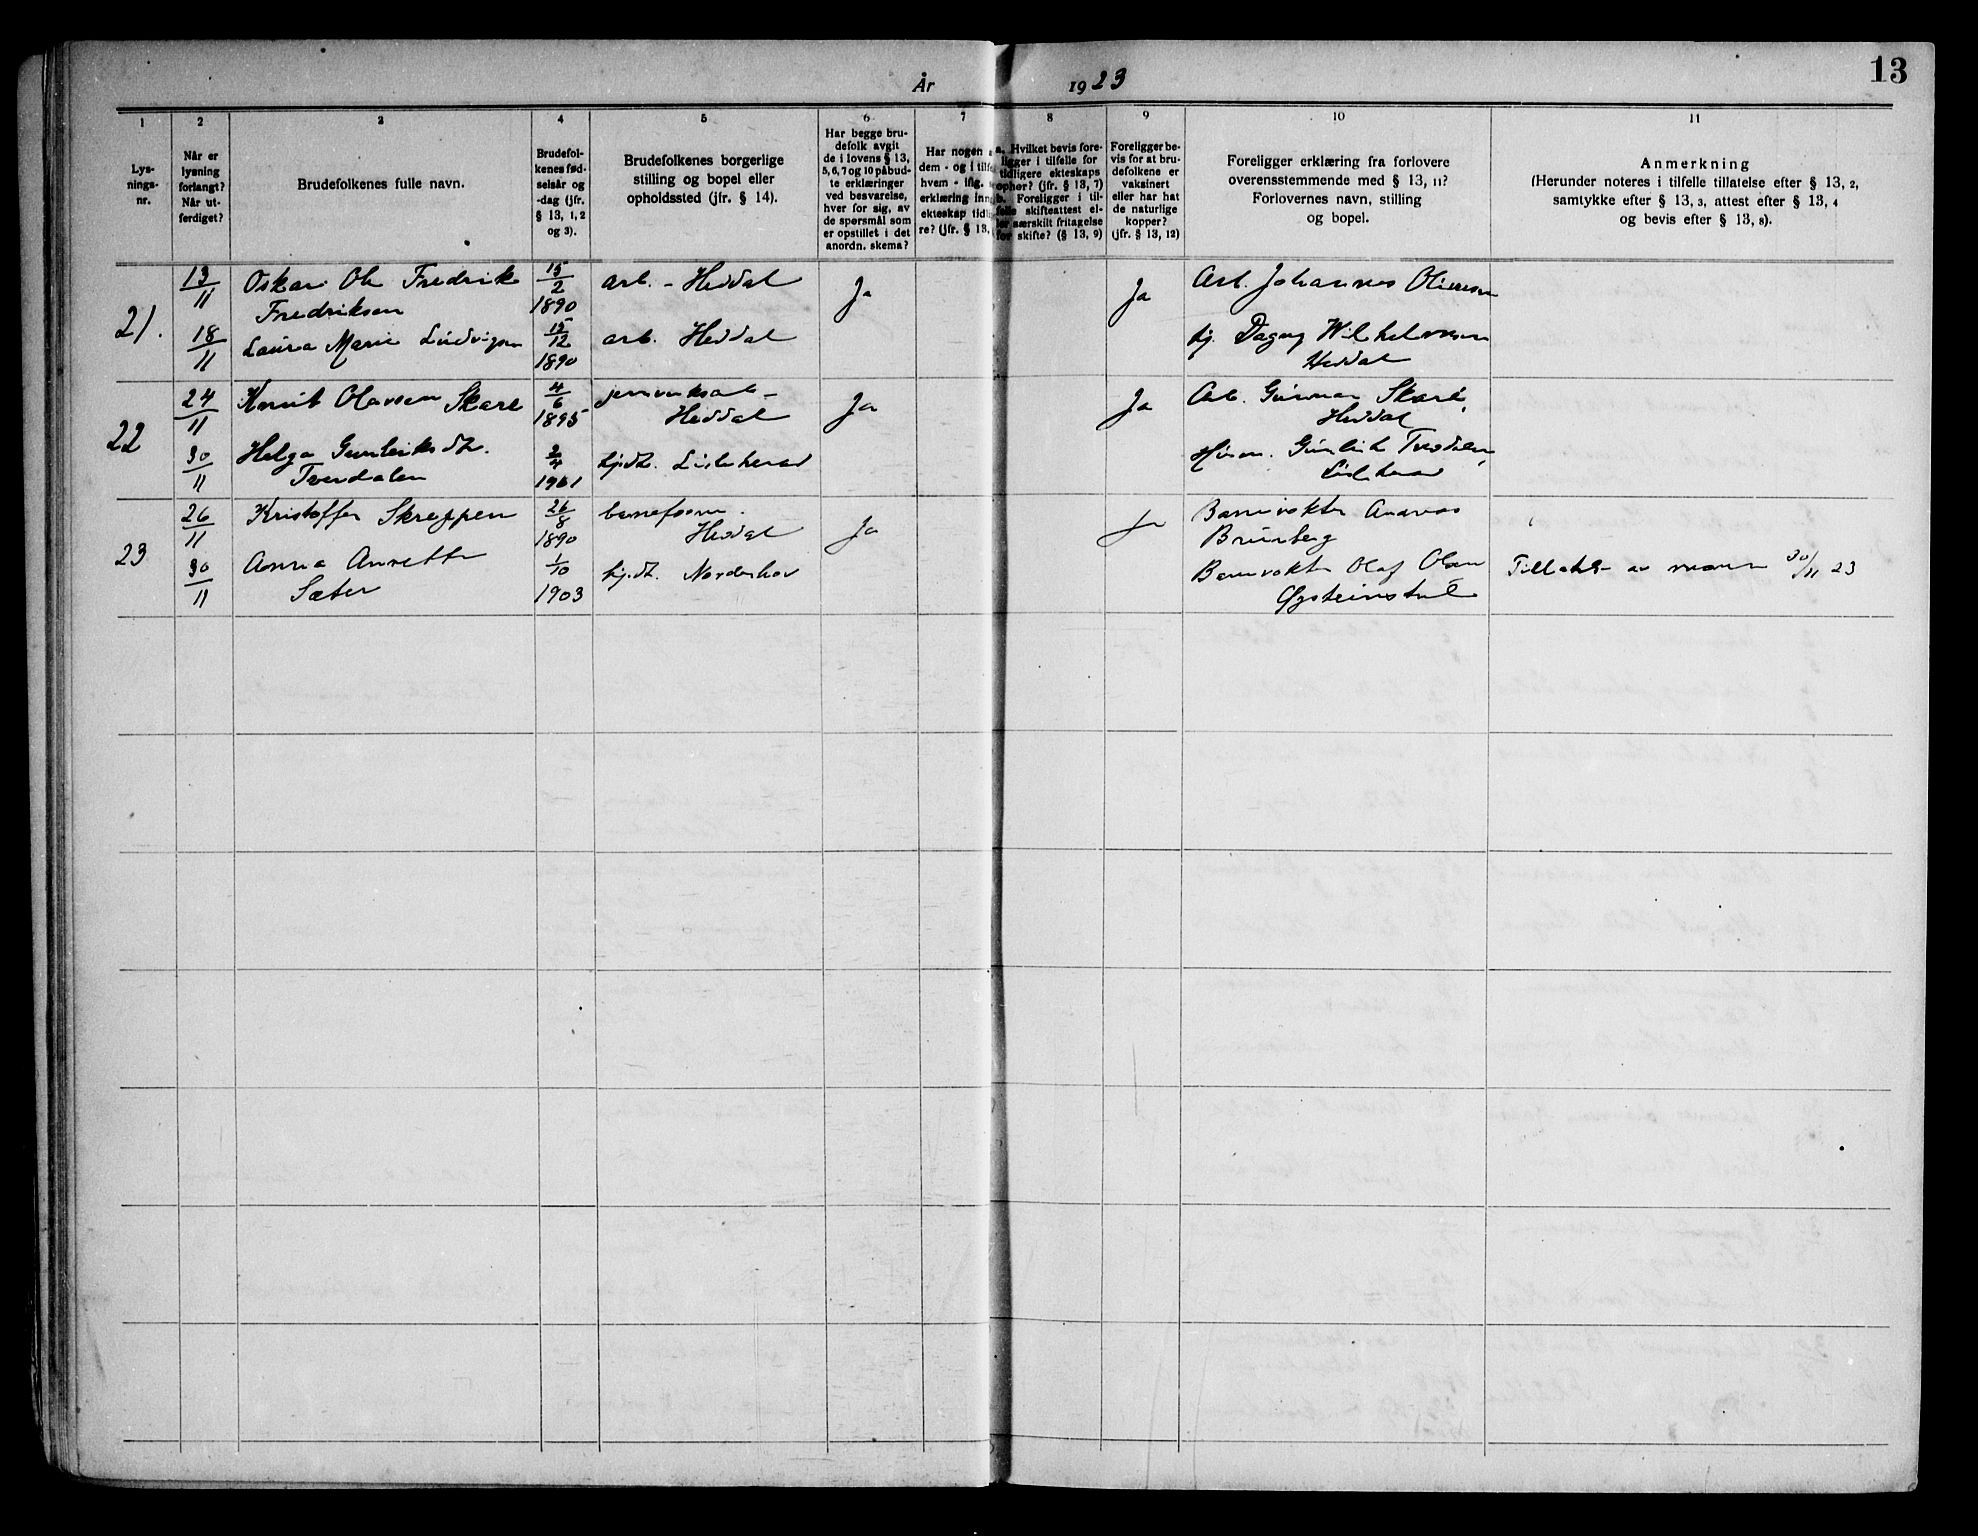 13
År 1923
1 2 3 4 5 6 7 8 9 10 11
Lys-
nings-
nr.
Når er
lysning
forlangt?
Når ut-
ferdiget?
Brudefolkenes fulle navn.
Brudefol-
kenes fød-
selsår og
-dag (jfr.
§ 13, 1, 2
og 3).
Brudefolkenes borgerlige
stilling og bopel eller
opholdssted (jfr. § 14).
Har begge bru-
defolk avgit
de i lovens § 13,
5, 6, 7 og 10 påbud-
te erklæringer
ved besvarelse,
hver for sig, av
de spørsmål som
er opstillet i det
anordn. skema?
Har nogen a
dem - og i tilfe
hvem - ifig.
erklæring inng
ekteskap tidlig
re? (jfr. § 13,
a. Hvilket bevis fore-
ligger i tilfelle for
tidligere ekteskaps
ophør? (jfr. § 13, 7)
b. Foreligger i til-
felle skifteattest el-
ler særskilt fritagelse
for skifte? (§ 13, 9)
Foreligger be-
vis for at bru-
defolkene er
vaksinert
eller har hat
de naturlige
kopper?
(jfr. § 13, 12)
Foreligger erklæring fra forlovere
overensstemmende med § 13, 11?
Forlovernes navn, stilling
og bopel.
Anmerkning
(Herunder noteres i tilfelle tillatelse efter § 13, 2,
samtykke efter § 13, 3, attest efter § 13, 4
og bevis efter § 13, 8).
21.
13/11
18/11
Oskar Ole Fredrik
Fredriksen
Laura Marie Ludvigsen
15/2
1890
15/12
1890
arb. - Heddal
arb. Heddal
Ja
Ja
Arb. Johannes Oliversen
Dagny Wilhelmsen
Heddal
22
24/11
30/11
Knut Olavsen Skare
Helga Gunleiksdt.
Tverdalen
4/6
1895
2/4
1901
Heddal
hjdt. Lisleherad
Ja
Ja
Arb. Gunnar Skare,
Heddal
Gunleik Tverdalen,
Lisleherad
23
26/11
30/11
Kristoffer Skreppen
Anna Annette
Sæter
26/8
1890
1/10
1903
baneform.
Heddal
hjdt. Norderhov
Ja
Ja
Banevokter Andreas
Brunberg
Banevokter Olaf Olsen
Øysteinstul
Tillatelse av 30/11 23